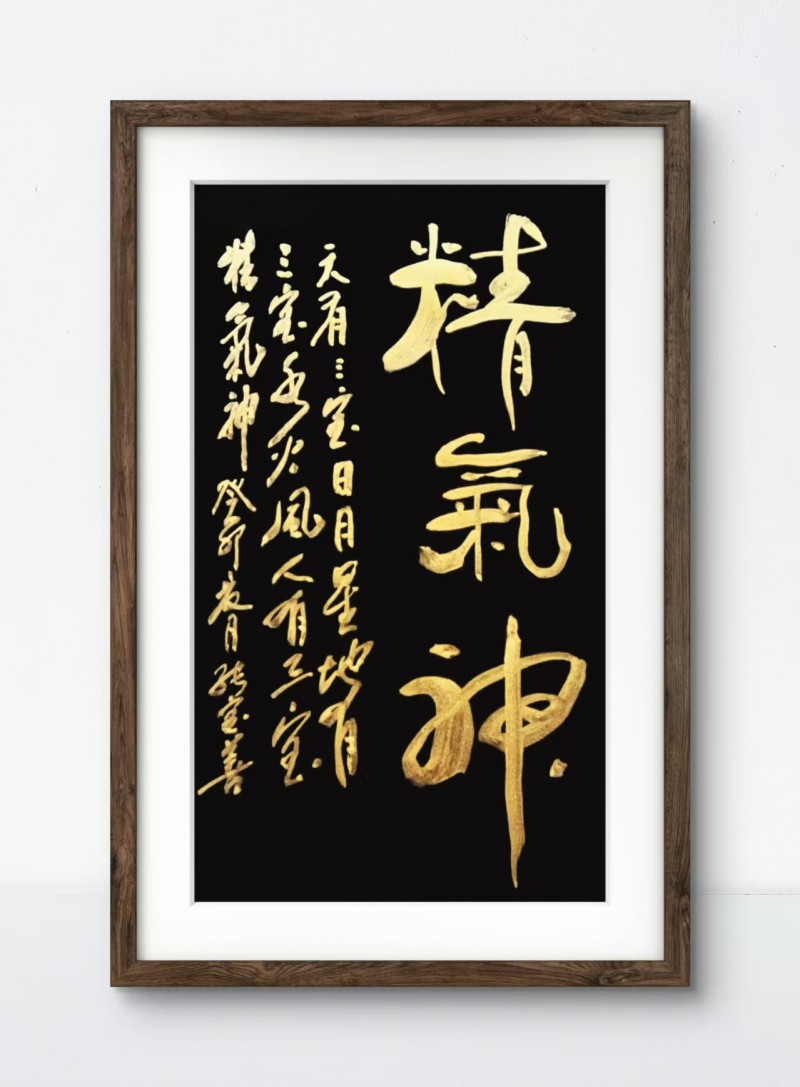 精氣神
天有三宝日月星地有
三宝水火風人有三宝
精氣神 癸卯夏月 张宝善